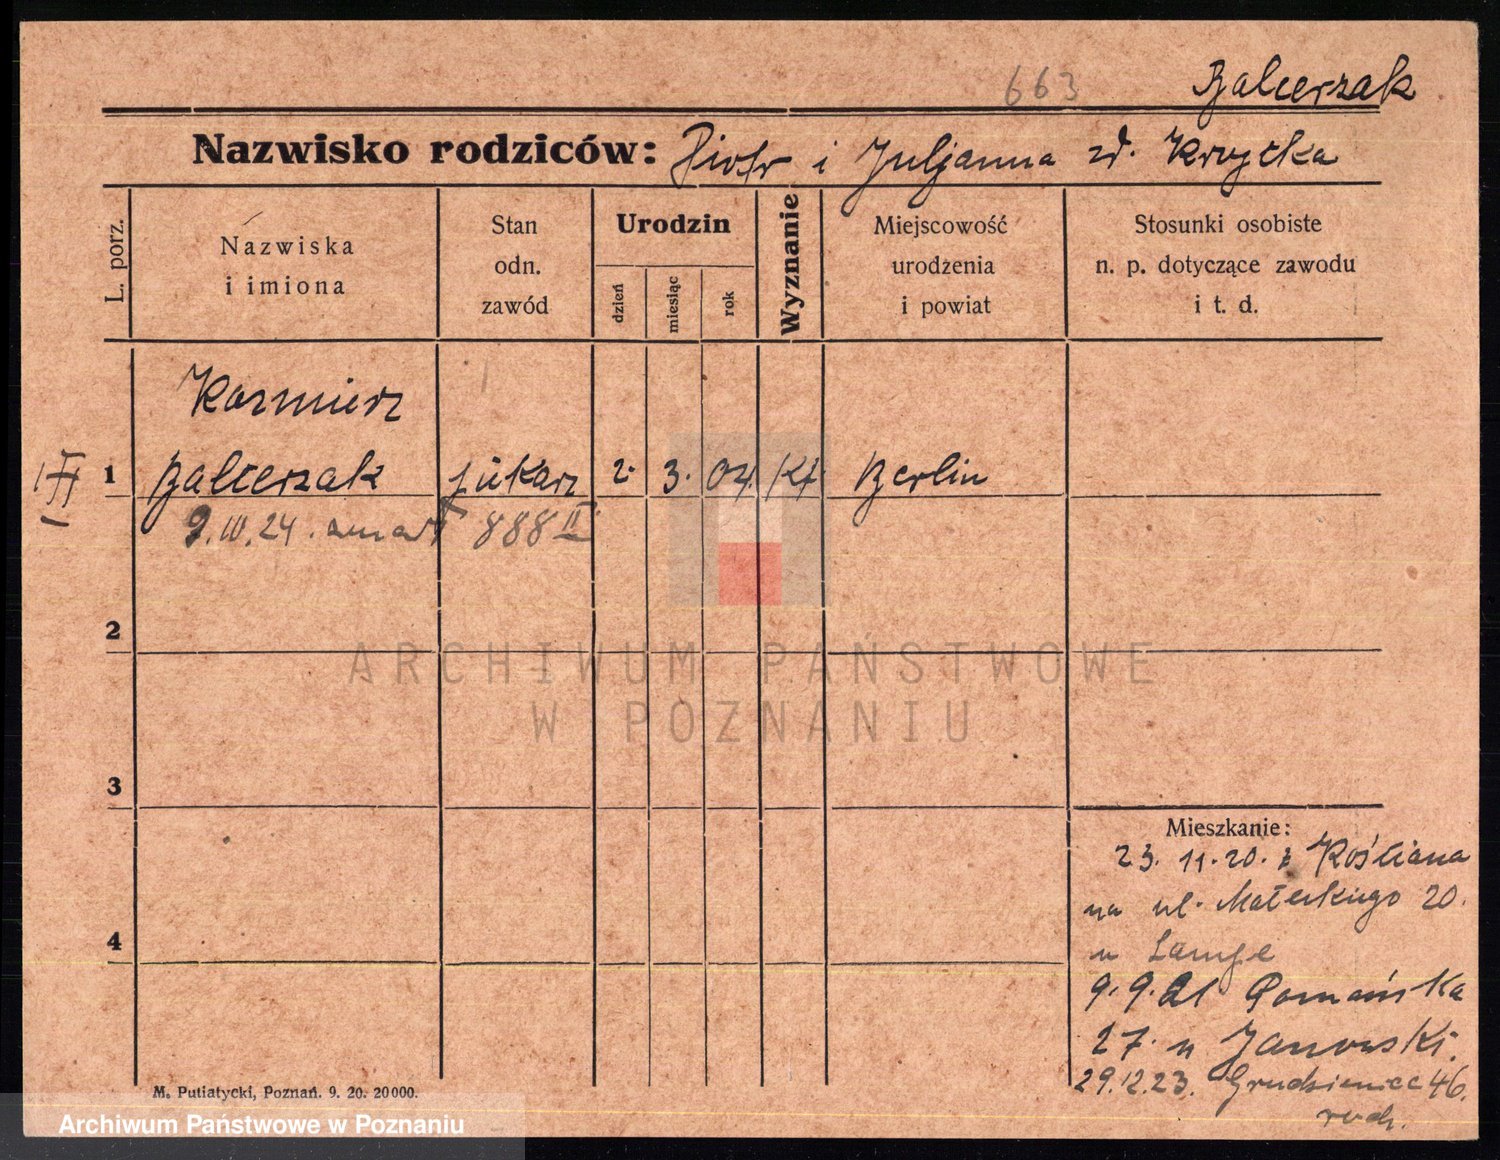 663 Balcerzak
Nazwisko rodziców: Piotr i Juljanna zd. Krzycka
L. porz.
Nazwiska
i imiona
Stan
odn.
zawód
Urodzin
dzień
miesiąc
rok
Wyznanie
Miejscowość
urodzenia
i powiat
Stosunki osobiste
n. p. dotyczące zawodu
i t. d.
Kazmierz
1 Balcerzak 2. 3. 04. Kt. Berlin
9.IV.24. zmarł 888 II
2
ARCHIWUM PAŃSTWOWE
W POZNANIU
3
Mieszkanie:
23. 11. 20. z Kościana
na ul. Małeckiego 20.
u Lange
4
9. 9. 21 Poznańska
27. u Janowski.
29.12.23. Grudzieniec 46.
rodz.
M. Putiatycki, Poznań. 9. 20. 20000.
Archiwum Państwowe w Poznaniu